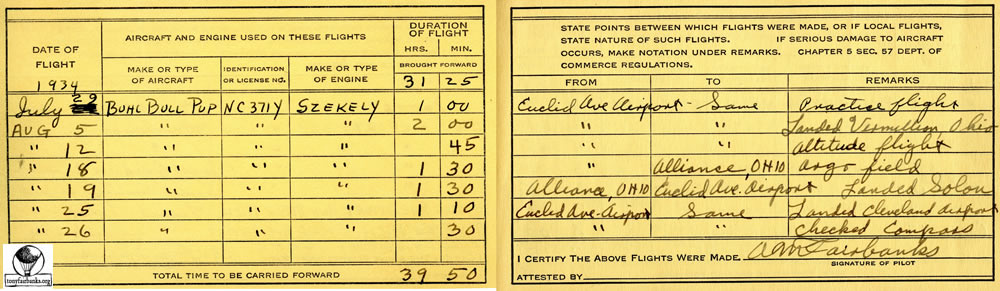 DATE OF FLIGHT
1934
AIRCRAFT AND ENGINE USED ON THESE FLIGHTS
DURATION OF FLIGHT
HRS. MIN.
MAKE OR TYPE OF AIRCRAFT
IDENTIFICATION OR LICENSE NO.
MAKE OR TYPE OF ENGINE
BROUGHT FORWARD
31 25
July 29 BUHL BULL PUP NC371Y SZEKELY 1 00
AUG 5 " " " 2 00
" 12 " " " 45
" 18 " " " 1 30
" 19 " " " 1 30
" 25 " " " 1 10
" 26 " " " 30
TOTAL TIME TO BE CARRIED FORWARD 39 50
tonyfairbanks.org
STATE POINTS BETWEEN WHICH FLIGHTS WERE MADE, OR IF LOCAL FLIGHTS,
STATE NATURE OF SUCH FLIGHTS. IF SERIOUS DAMAGE TO AIRCRAFT
OCCURS, MAKE NOTATION UNDER REMARKS. CHAPTER 5 SEC. 57 DEPT. OF
COMMERCE REGULATIONS.
FROM TO REMARKS
Euclid Ave Airport - Same Practice flight
" " Landed Vermillion, Ohio
" " Altitude flight
" Alliance, OHIO Argo field
Alliance, OHIO Euclid Ave. Airport Landed Solon
Euclid Ave. Airport Same Landed Cleveland Airport
" " Checked Compass
I CERTIFY THE ABOVE FLIGHTS WERE MADE. A M Fairbanks
SIGNATURE OF PILOT
ATTESTED BY